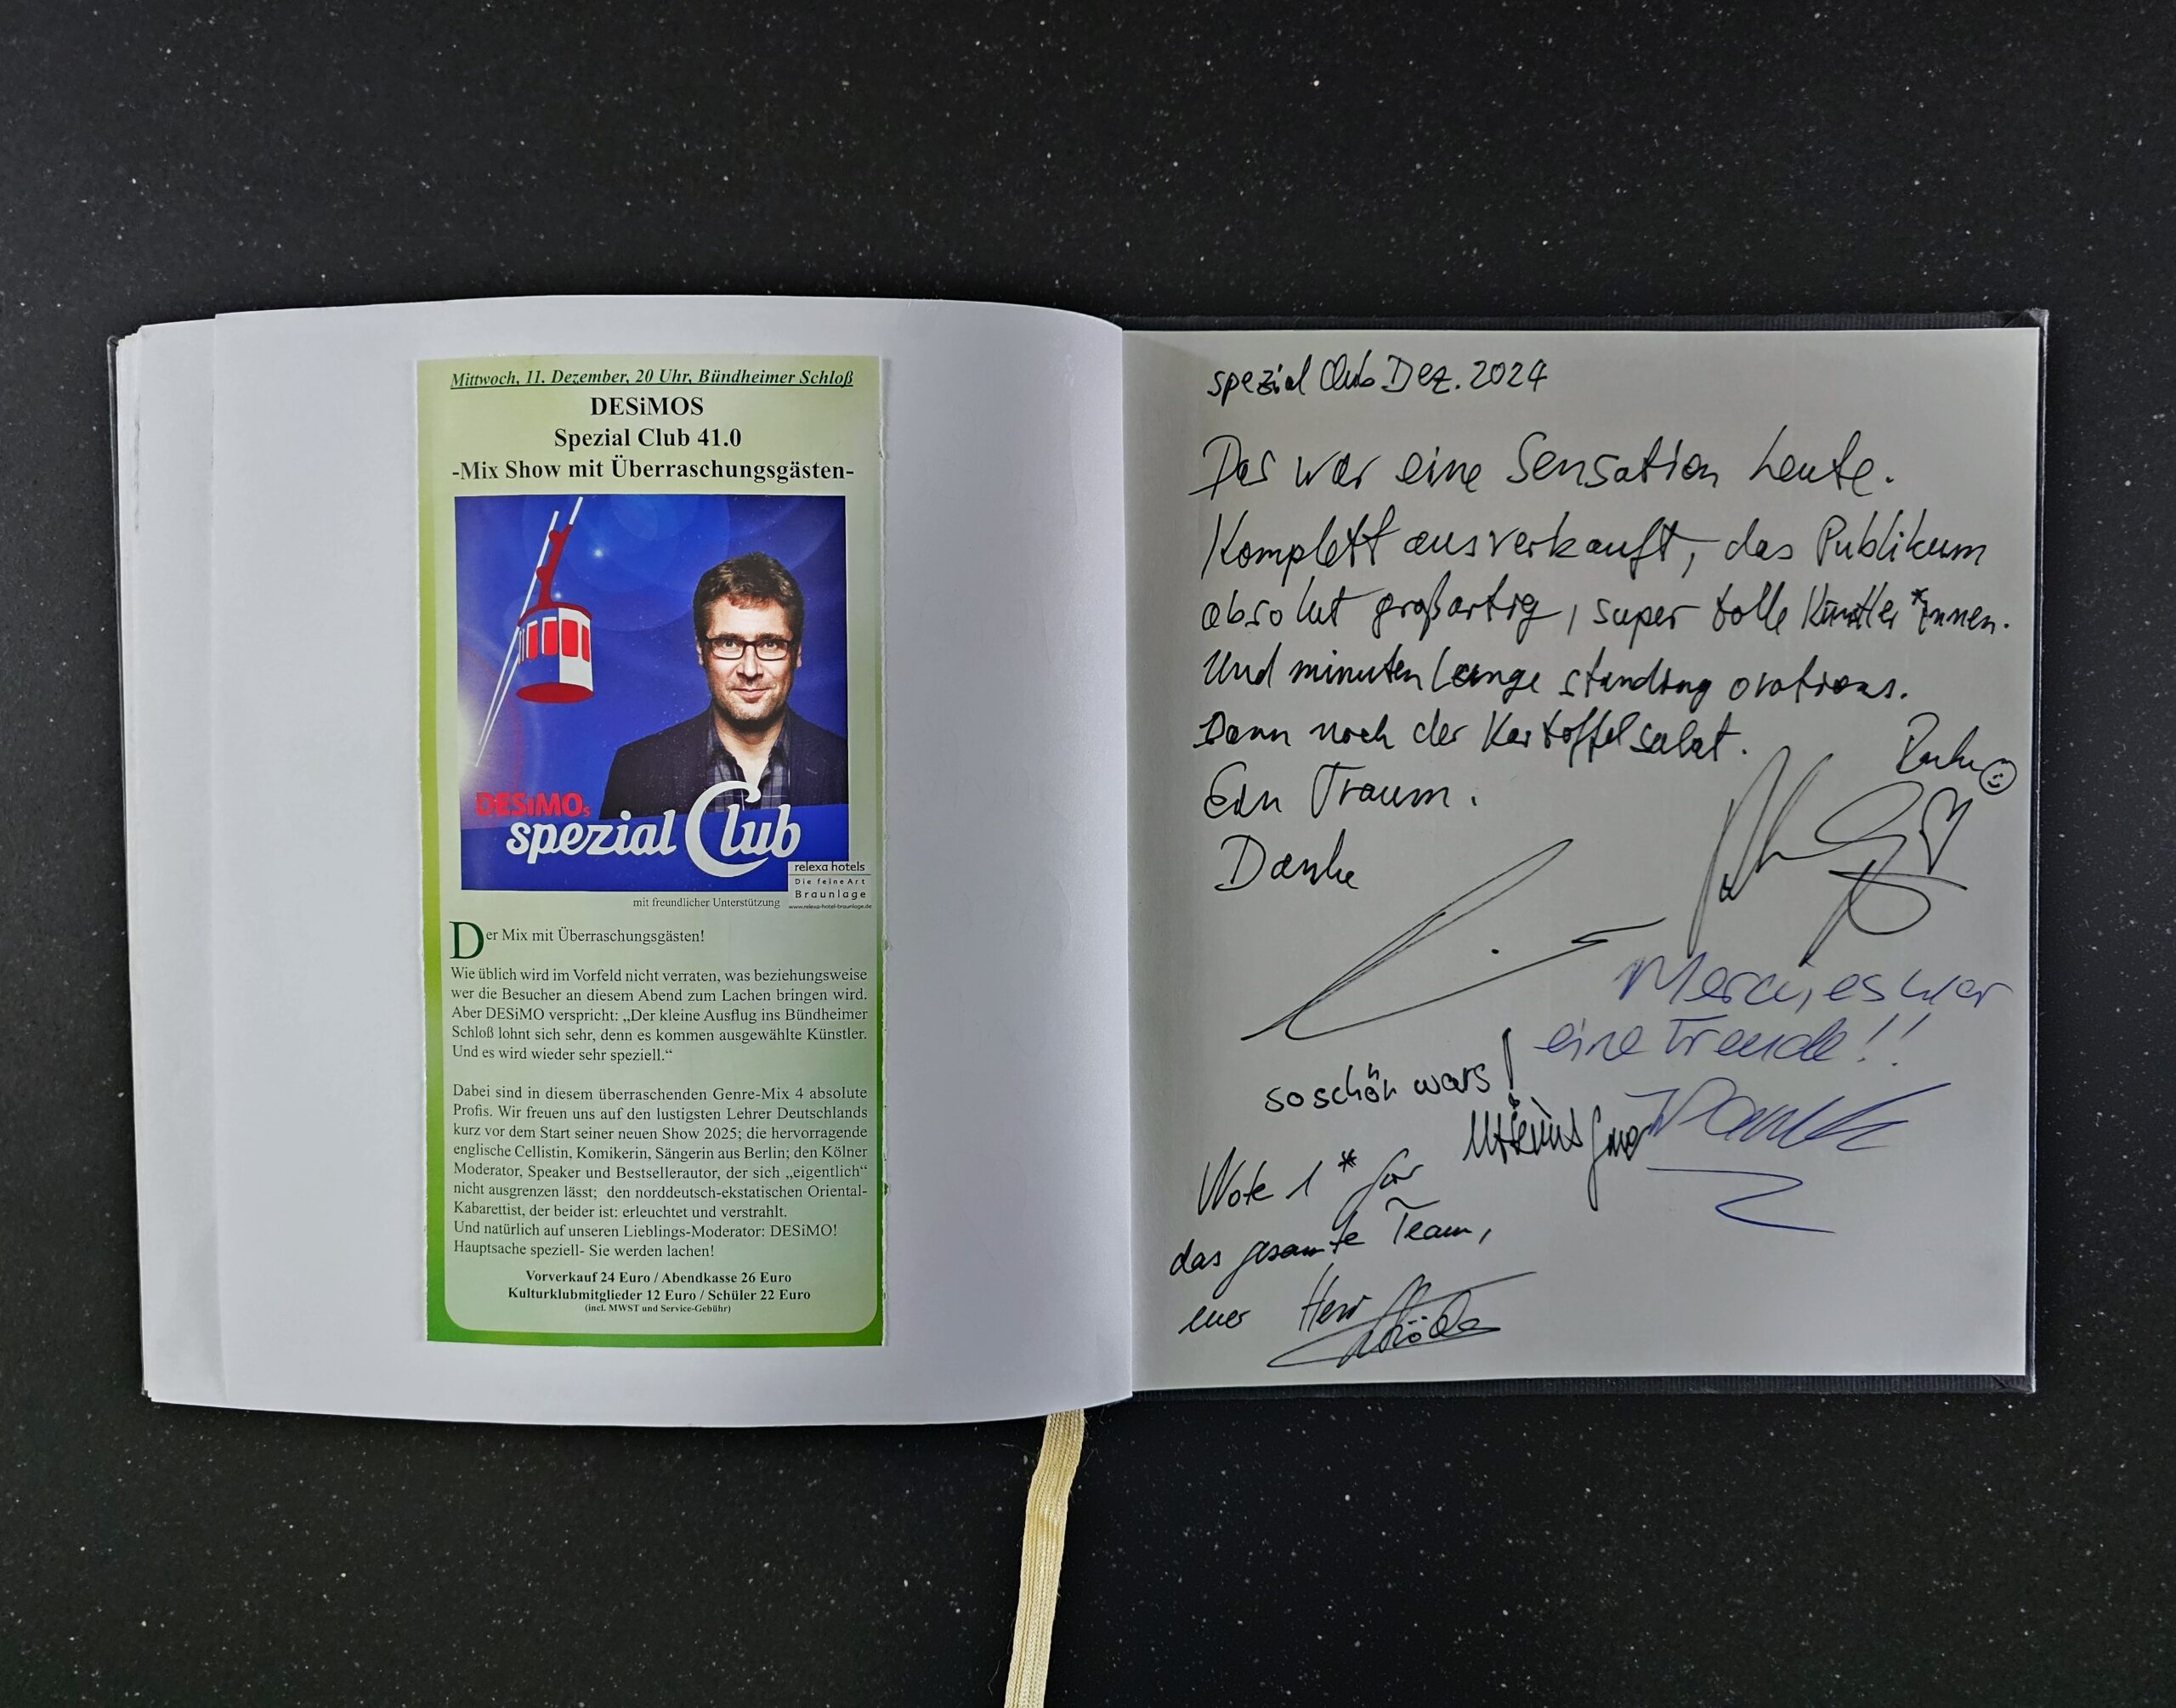 Mittwoch, 11. Dezember, 20 Uhr, Bündheimer Schloß
DESiMOS
Spezial Club 41.0
-Mix Show mit Überraschungsgästen-
DESiMOs
spezial Club
relexa hotels
Die feine Art
Braunlage
www.relexa-hotel-braunlage.de
mit freundlicher Unterstützung
Der Mix mit Überraschungsgästen!
Wie üblich wird im Vorfeld nicht verraten, was beziehungsweise
wer die Besucher an diesem Abend zum Lachen bringen wird.
Aber DESiMO verspricht: „Der kleine Ausflug ins Bündheimer
Schloß lohnt sich sehr, denn es kommen ausgewählte Künstler.
Und es wird wieder sehr speziell.“
Dabei sind in diesem überraschenden Genre-Mix 4 absolute
Profis. Wir freuen uns auf den lustigsten Lehrer Deutschlands
kurz vor dem Start seiner neuen Show 2025; die hervorragende
englische Cellistin, Komikerin, Sängerin aus Berlin; den Kölner
Moderator, Speaker und Bestsellerautor, der sich „eigentlich“
nicht ausgrenzen lässt; den norddeutsch-ekstatischen Oriental-
Kabarettist, der beider ist: erleuchtet und verstrahlt.
Und natürlich auf unseren Lieblings-Moderator: DESiMO!
Hauptsache speziell- Sie werden lachen!
Vorverkauf 24 Euro / Abendkasse 26 Euro
Kulturklubmitglieder 12 Euro / Schüler 22 Euro
(incl. MWST und Service-Gebühr)
spezial Club Dez. 2024
Das war eine Sensation heute.
Komplett ausverkauft, das Publikum
absolut großartig, super tolle Künstler*innen.
Und minutenlange standing ovations.
Dann noch der Kartoffelsalat.
Ein Traum.
Danke
Merci, es war
eine Freude!!
so schön wars!
Note 1* für
das gesamte Team,
euer Herr Schröder